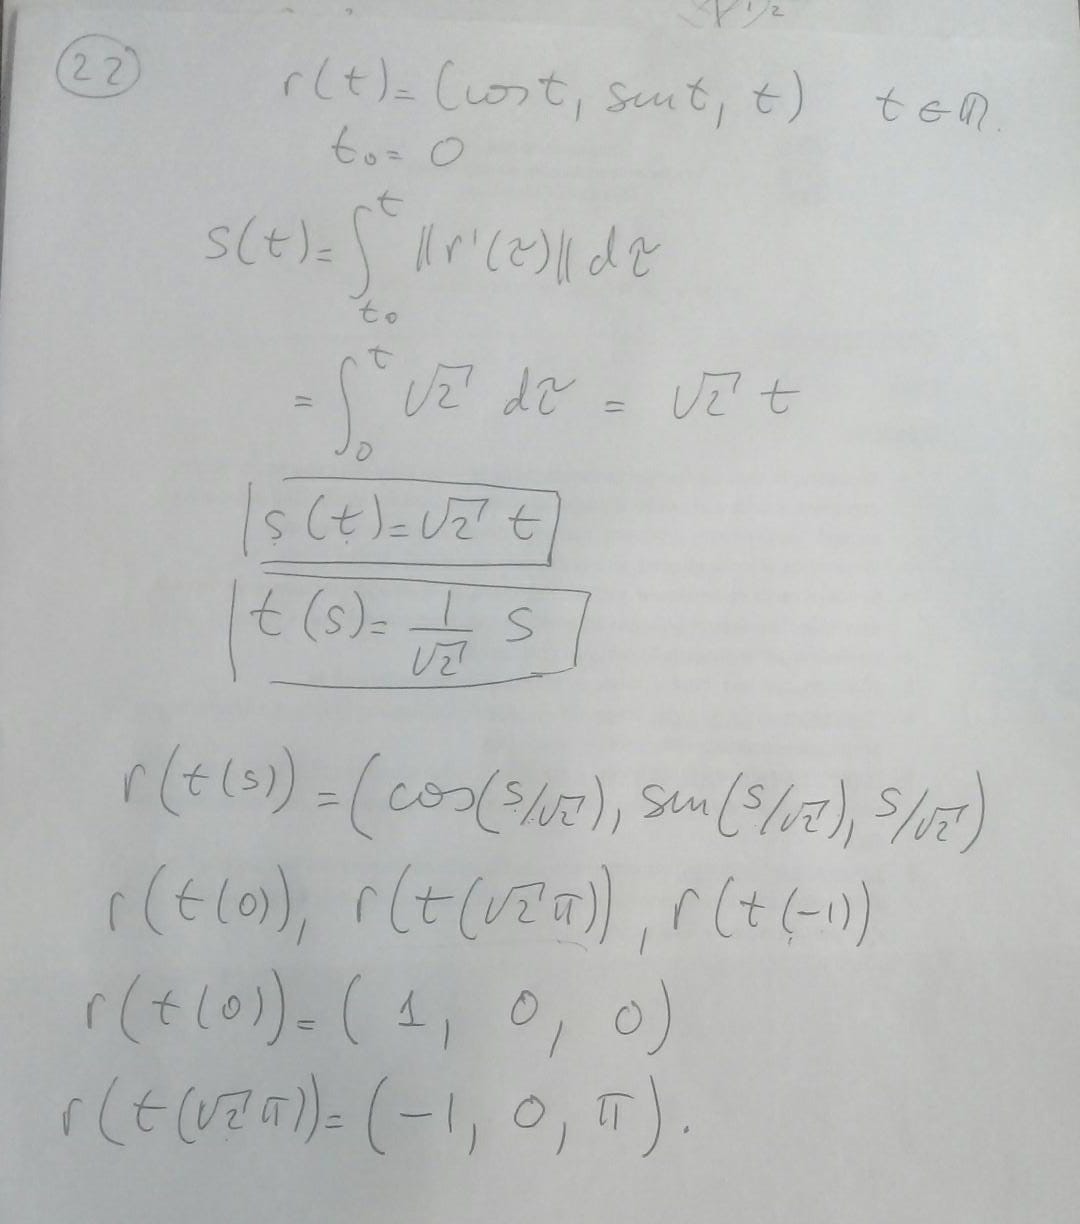 22
r(t) = (cos t, sin t, t) t ∈ ℝ.
t₀ = 0
s(t) = ∫_{t₀}^{t} ||r'(τ)|| dτ
= ∫_{0}^{t} √2 dτ = √2 t
s(t) = √2 t
t(s) = 1/√2 s
r(t(s)) = (cos(s/√2), sin(s/√2), s/√2)
r(t(0)), r(t(√2 π)), r(t(-1))
r(t(0)) = (1, 0, 0)
r(t(√2 π)) = (-1, 0, π).